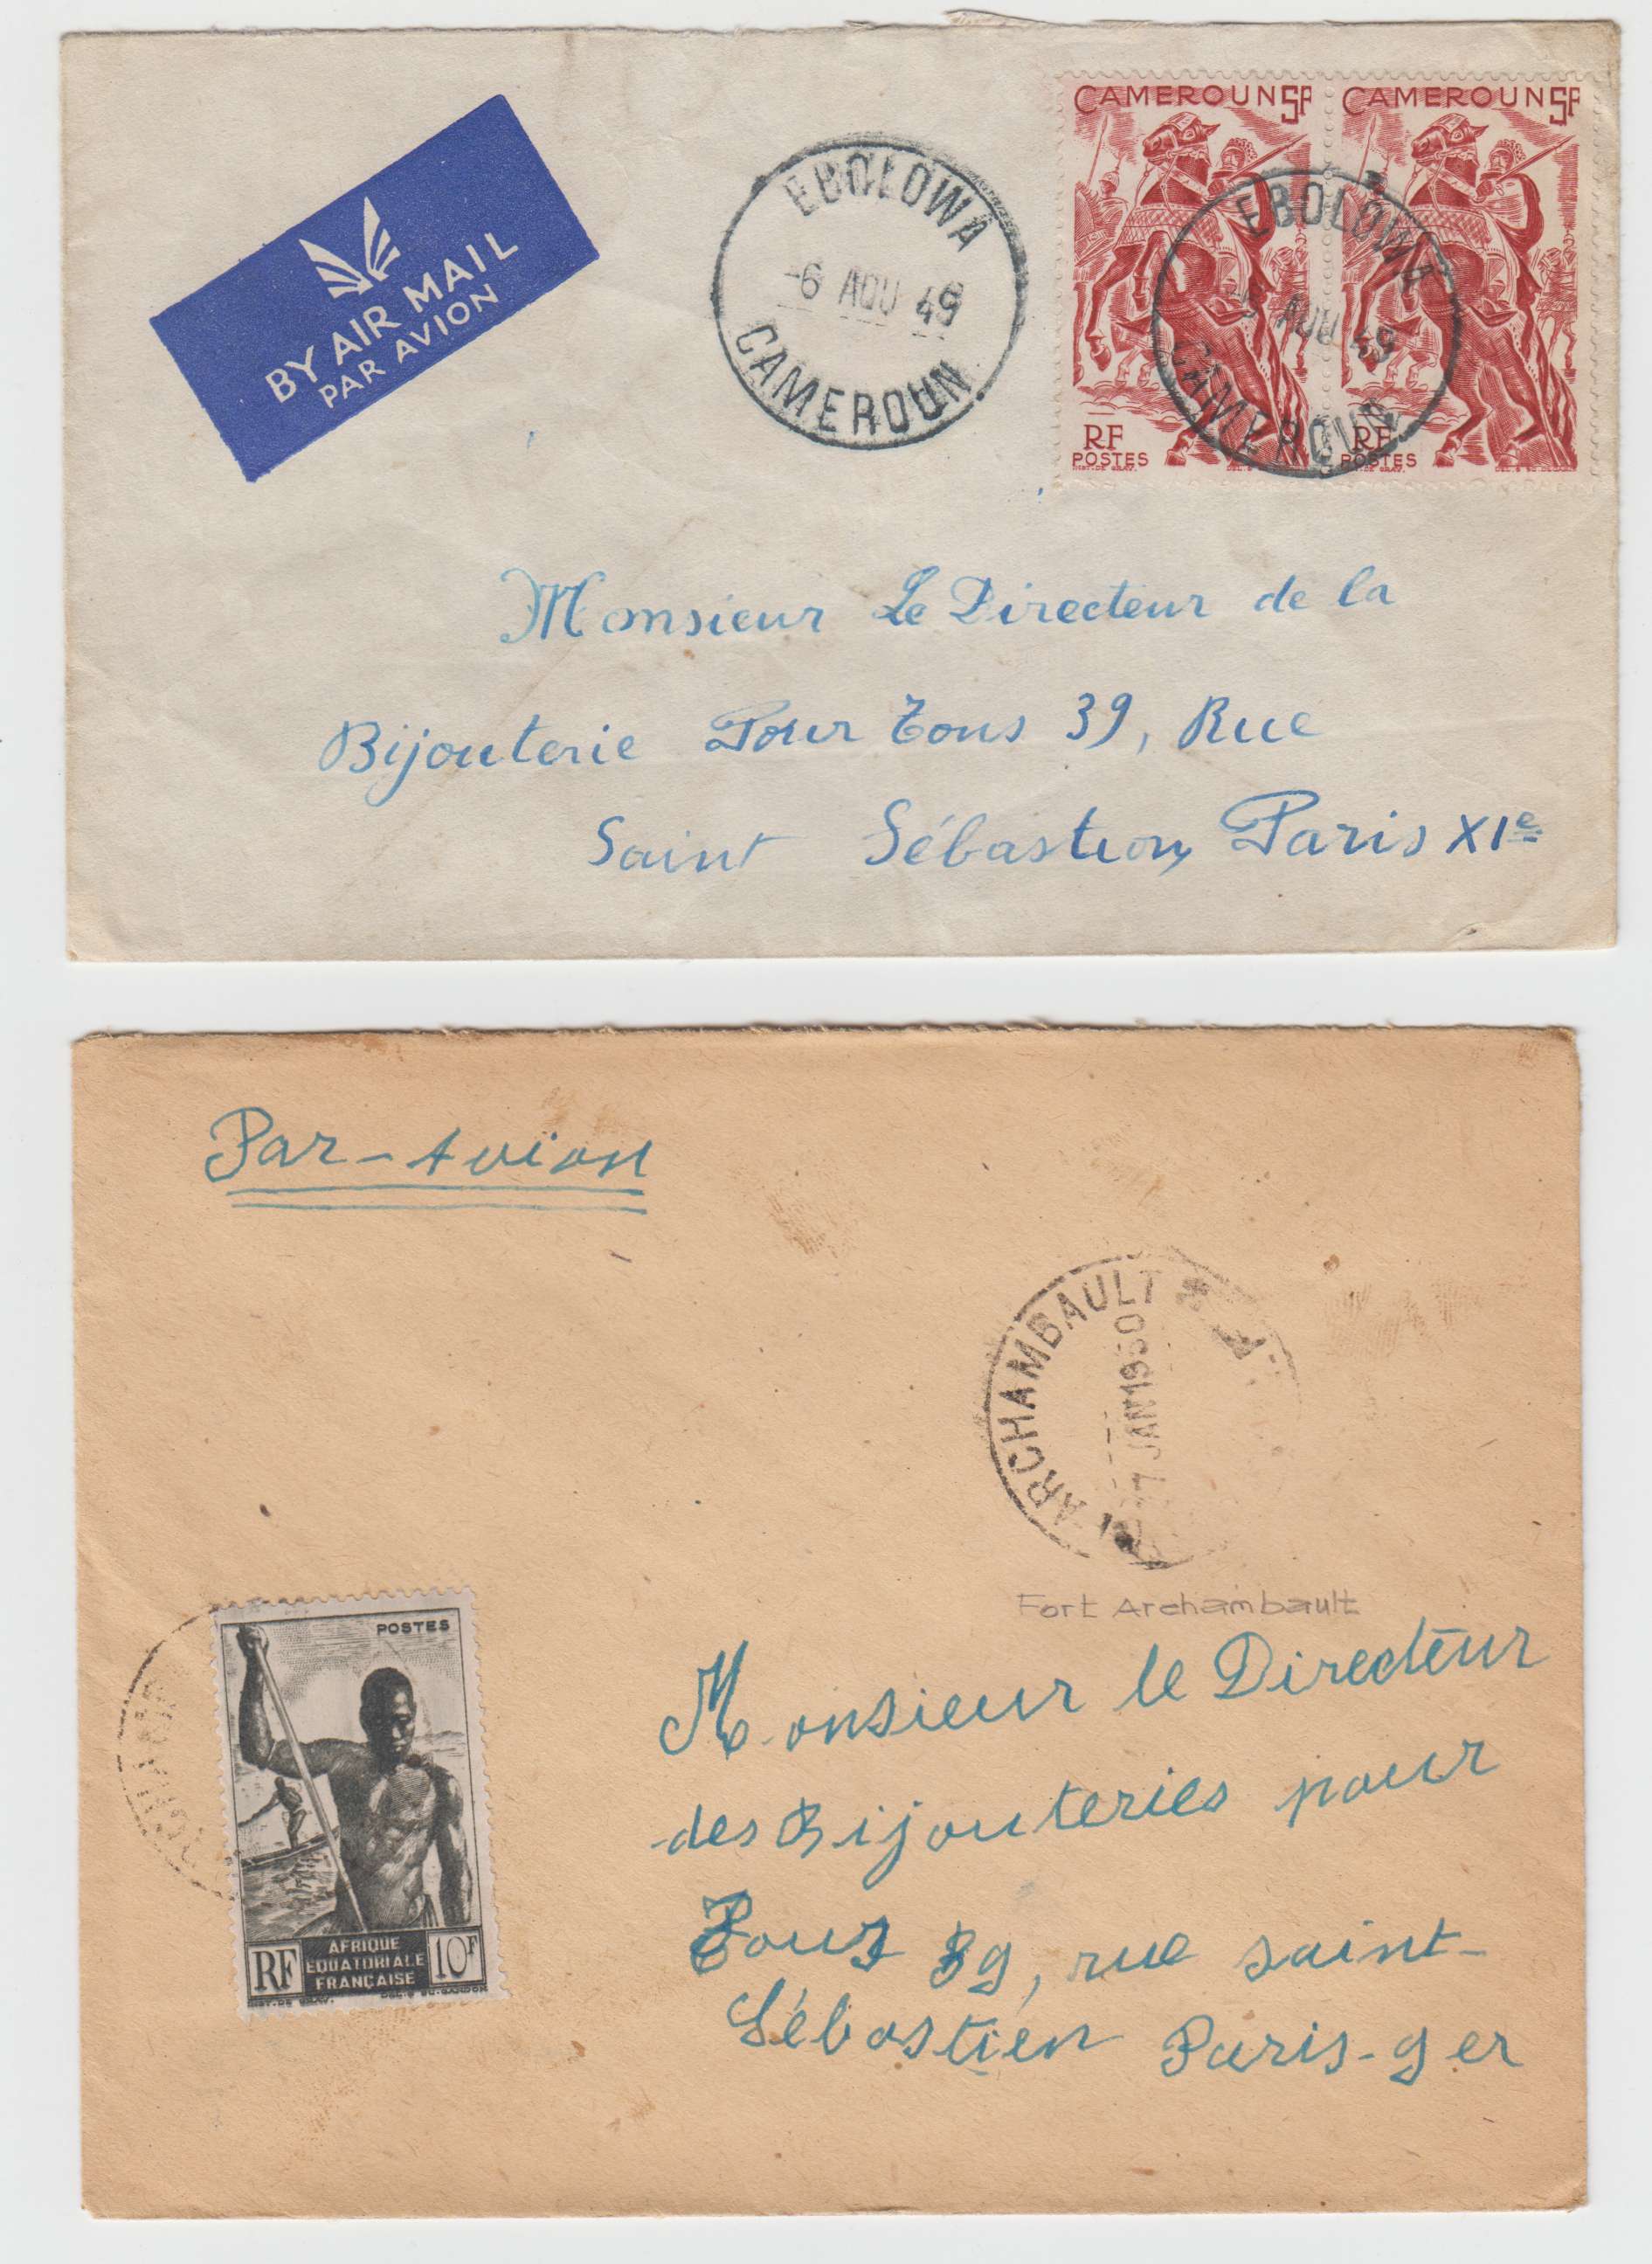 BY AIR MAIL
PAR AVION
EBOLOWA
-6 AOU 49
CAMEROUN
CAMEROUN 5F
RF
POSTES
INST. DE GRAV.
CAMEROUN 5F
RF
POSTES
INST. DE GRAV.
EBOLOWA
AOU 49
CAMEROUN
Monsieur Le Directeur de la
Bijouterie Pour Tous 39, Rue
Saint Sébastion, Paris XIe
Par-Avion
ARCHAMBAULT
JAN 1950
Fort Archambault
POSTES
RF
AFRIQUE
EQUATORIALE
FRANÇAISE
10F
INST. DE GRAV.
DEL. & SC. GANDON
Monsieur le Directeur
des Bijouteries pour
Tous 39, rue saint-
Sébastien Paris-9er